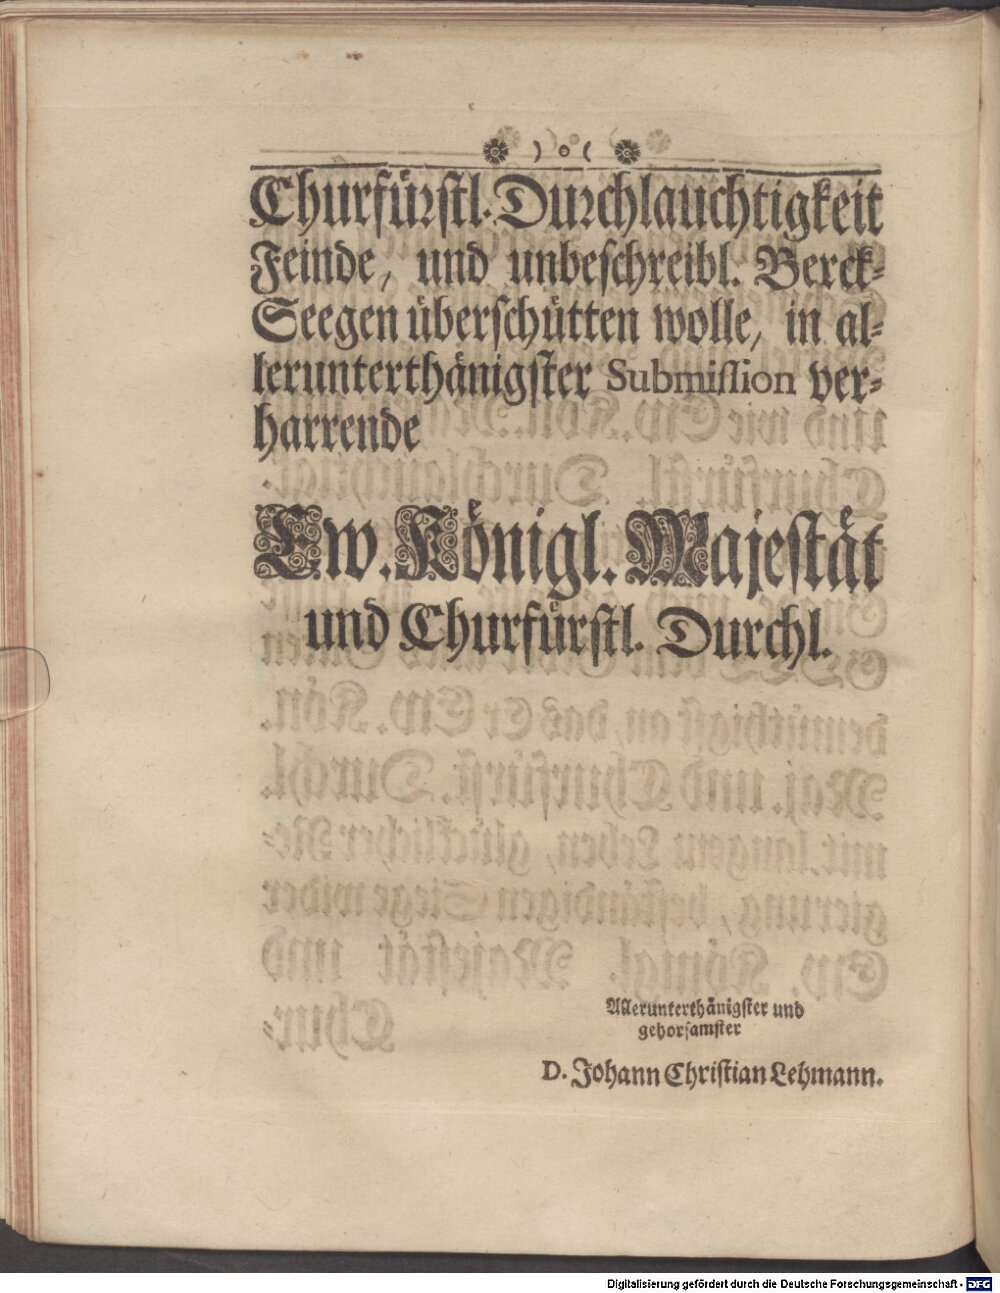 Churfürstl. Durchlauchtigkeit
Feinde, und unbeschreibl. Berck-
Seegen überschütten wolle, in al-
lerunterthänigster Submission ver-
harrende
Ew. Königl. Majestät
und Churfürstl. Durchl.
Allerunterthänigster und
gehorsamster
D. Johann Christian Lehmann.
Digitalisierung gefördert durch die Deutsche Forschungsgemeinschaft - DFG